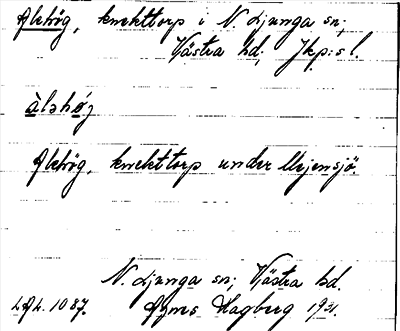 Alehög, knekttorp i N. Ljunga sn;
Västra hd; Jkp:s l.
àləhø̀g
Alehög, knekttorp under Mejensjö.
N. Ljunga sn; Västra hd.
LAL. 1087. Agnes Hagberg 1931.